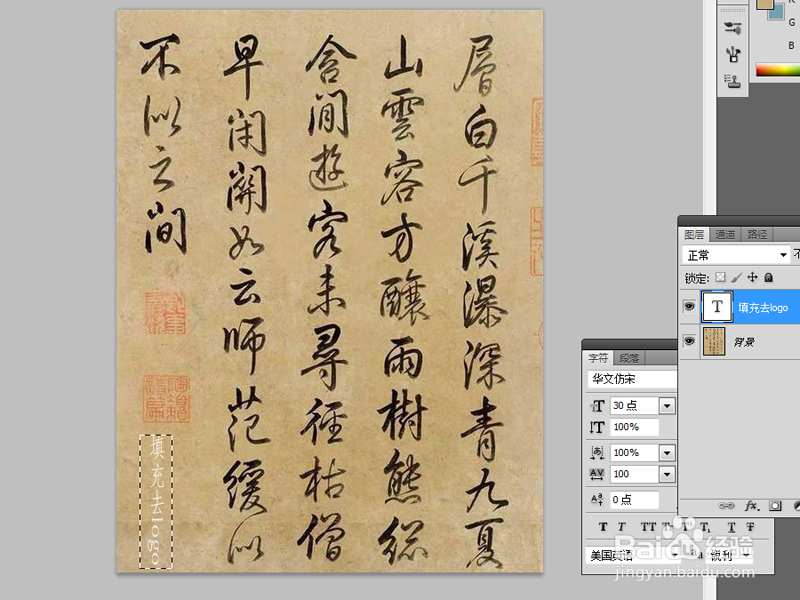 層白千溪瀑深青九夏
山雲容方釀雨樹態総
含閒遊客未尋径枯僧
早闲關如云師范緩以
不似云间
填充去logo
K
G
B
图层 通道 路径
正常
不
锁定:
T 填充去logo
背景
字符 段落
华文仿宋
30 点
100%
100%
100
0 点
T T TT T T, T T
美国英语 aa 锐利
Baidu 经验
jingyan.baidu.com